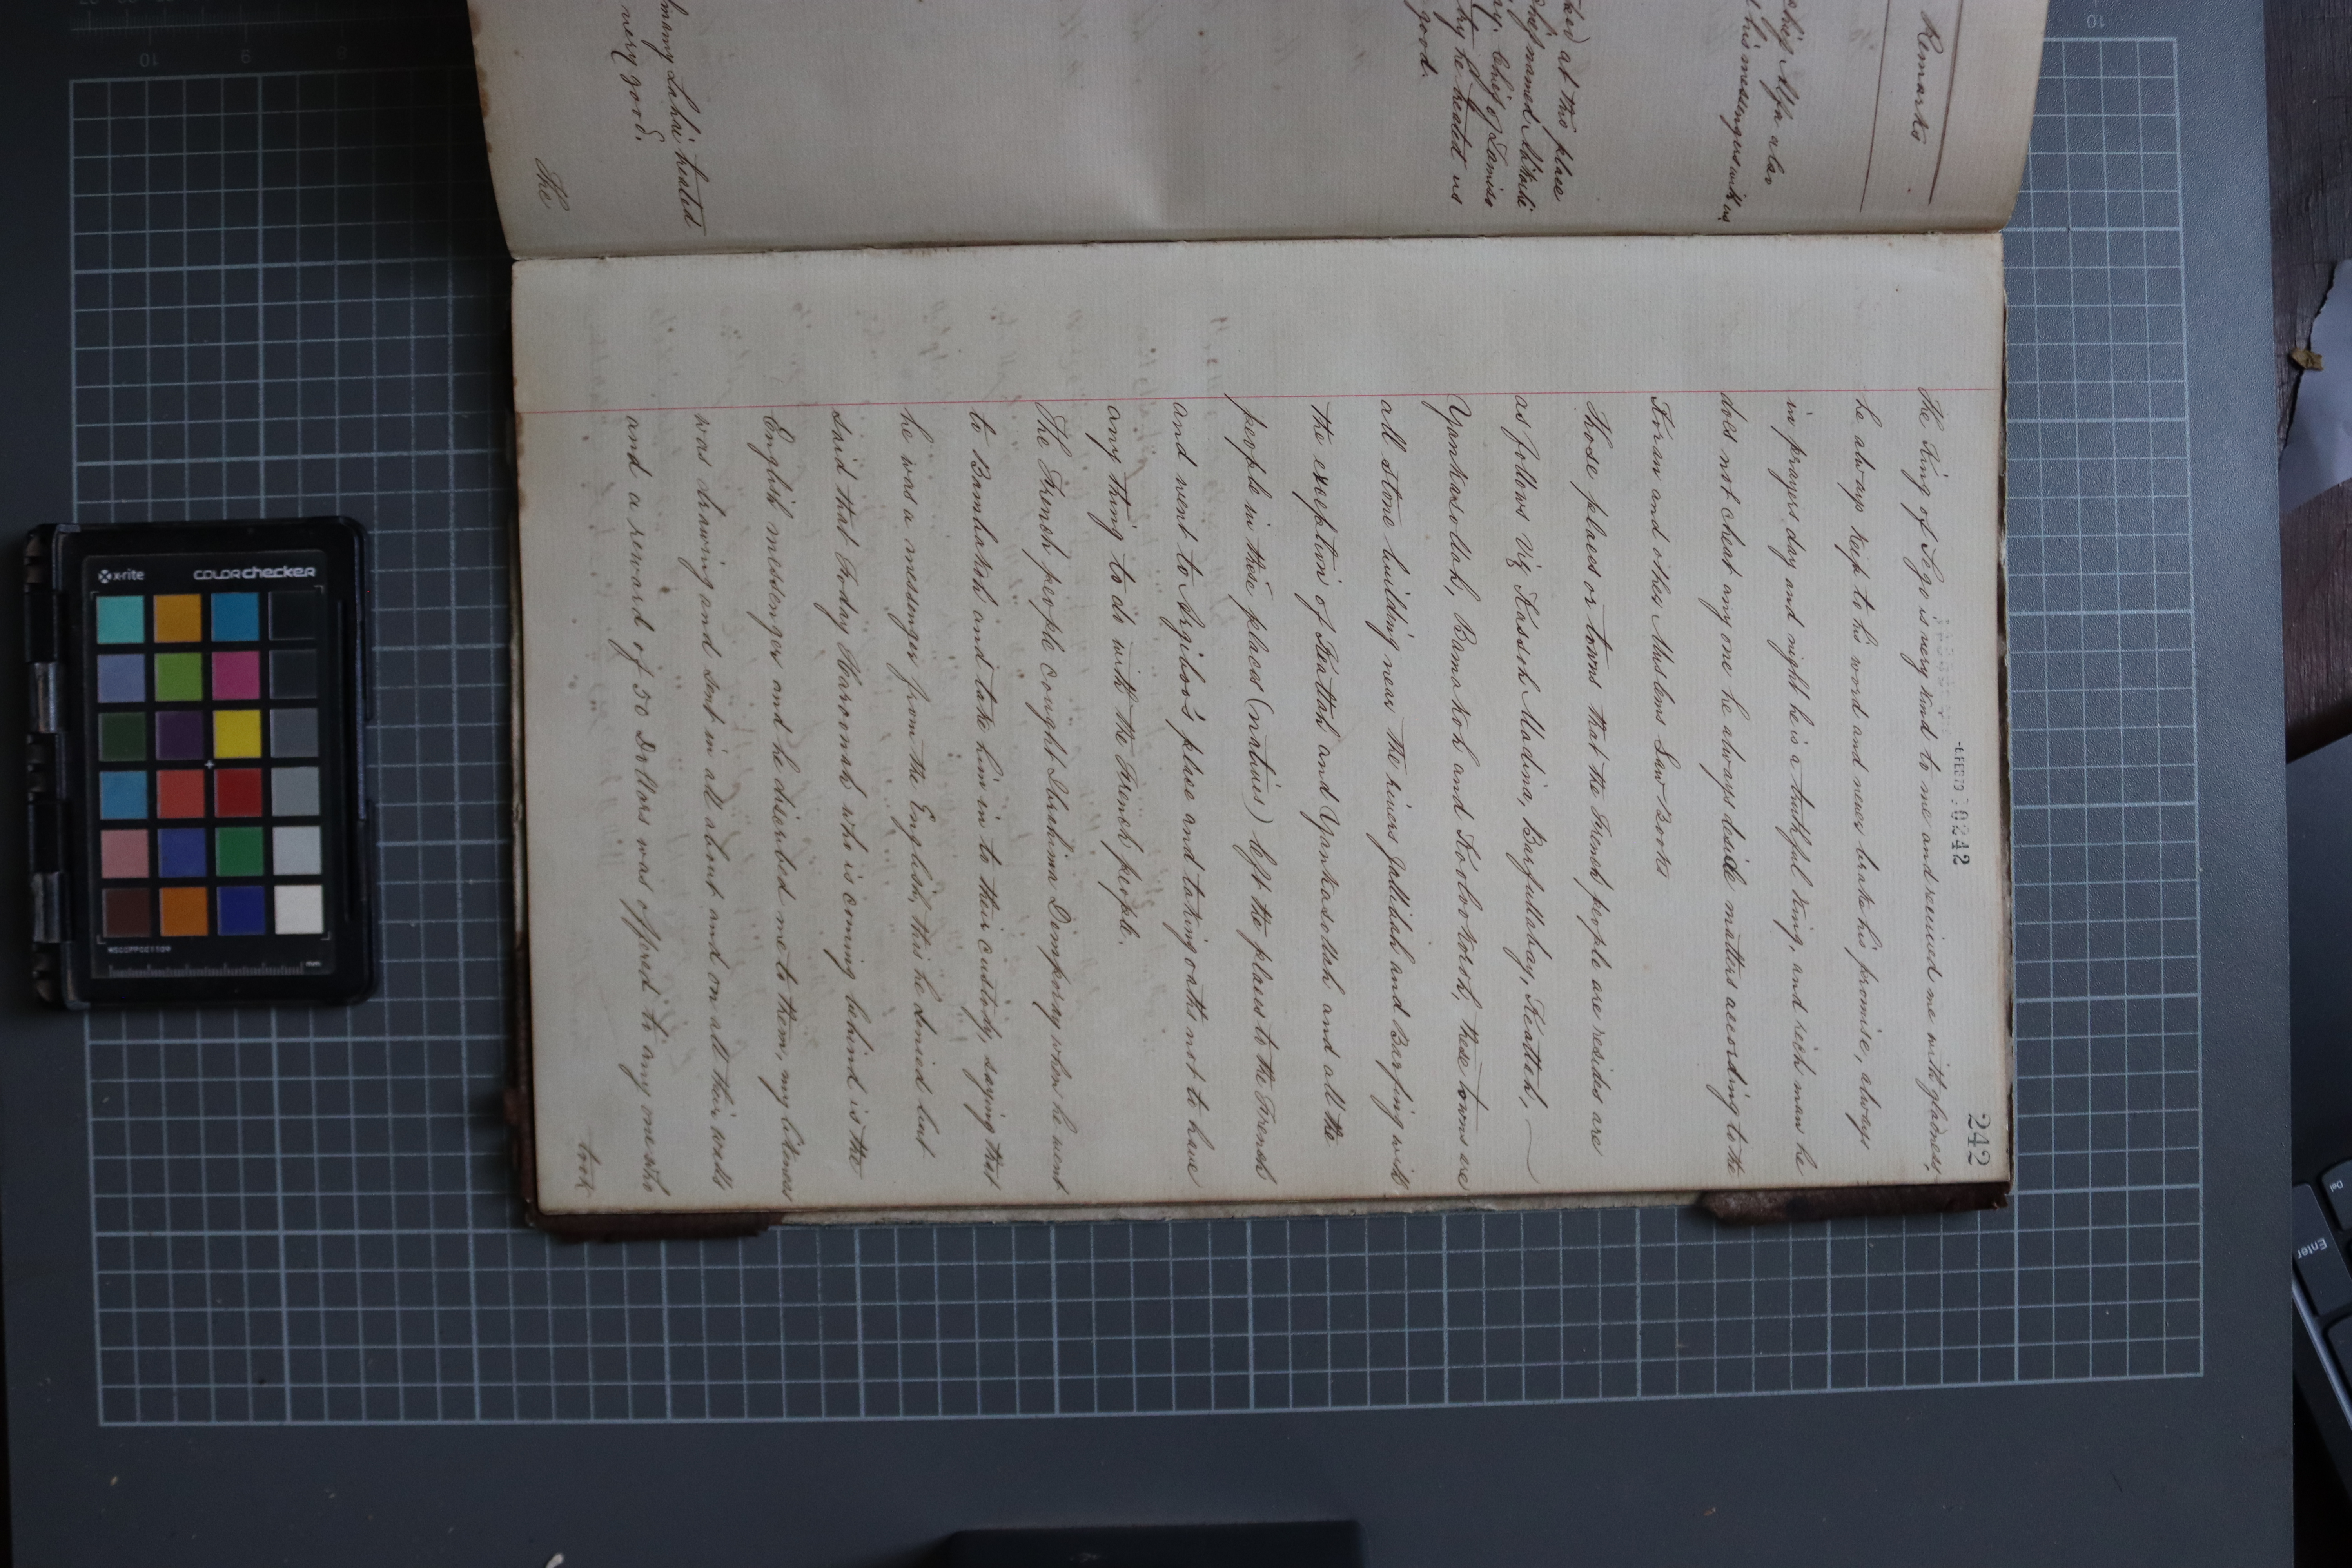 Remarks
chief Alfa also
his messengers with us
ked at this place
chief named
Chief of
he treated us
good.
Lahai treated
very good.
The
242
-4 FEB 79 30242
The King of Sego is very kind to me and received me with gladness,
he always keep to his word and never brake his promise, always
in prayers day and night he is a truthful King, and rich man he
does not cheat any one he always decide matters according to the
Koran and other Muslems Law Books
Those places or towns that the French people are resides are
as follows Viz Kasseh Madina, Barfullabay, Keattah,
Yankasollah, Bamakoh and Koolookoroh, these towns are
all Stone building near the rivers Jallibah and Barfing with
the exception of Keattah and Yankasollah and all the
people in these places (natives) left the places to the French
and went to Ajiboo's place and taking oaths not to have
any thing to do with the French people.
The French people caught Ibrahima Demporay when he went
to Bambakoh and take him in to their custody, saying that
he was a messenger from the English, this he denied but
said that Foday Haroonah who is coming behind is the
English messenger and he discribed me to them, my likeness
was drawing and sent in all about and on all their walls
and a reward of 50 Dollars was offered to any one who
took
x-rite
colorchecker
mm
Enter
Del
10
9
8
10